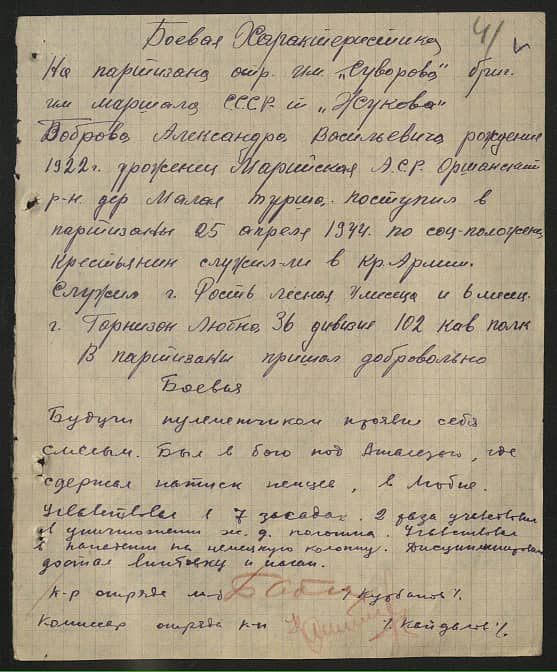 41
Боевая Характеристика
На партизана отр. им. „Суворова" бриг.
им маршала СССР-й „Жукова"
Боброва Александра Васильевича рождения
1922 г. уроженец Марийская А.С.Р. Оршанский
р-н. дер Малая Турша. поступил в
партизаны 25 апреля 1944. по соц-положен.
Крестьянин служил-ли в Кр. Армии.
Служил г. лесная 4 месеца и 6 месец.
г. Гарнизон Любча 36 дивизие 102 кав полк
В партизаны пришол добровольно
Боевыя
Будучи пулеметчиком проявил себя
смелым. Был в бою под где
сдержал натиск немцев, в Любче.
Учавствовал в 7 засадах. 2 раза учавствовал
в уничтожении ж.д. полотна. Учавствовал
в нападении на немецкую колонну. Дисциплинирован
достал винтовку и наган.
К-р отряда
Комиссар отряда к-н /Кайдалов/.